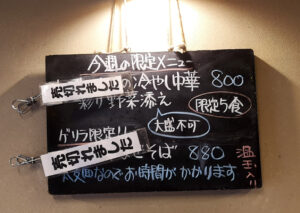 今週の限定メニュー
の冷やし中華 800
彩り野菜添え
限定5食
大盛不可
売切れました
ゲリラ限定!!
まぜそば 880
温玉入り
太麺なのでお時間がかかります
売切れました